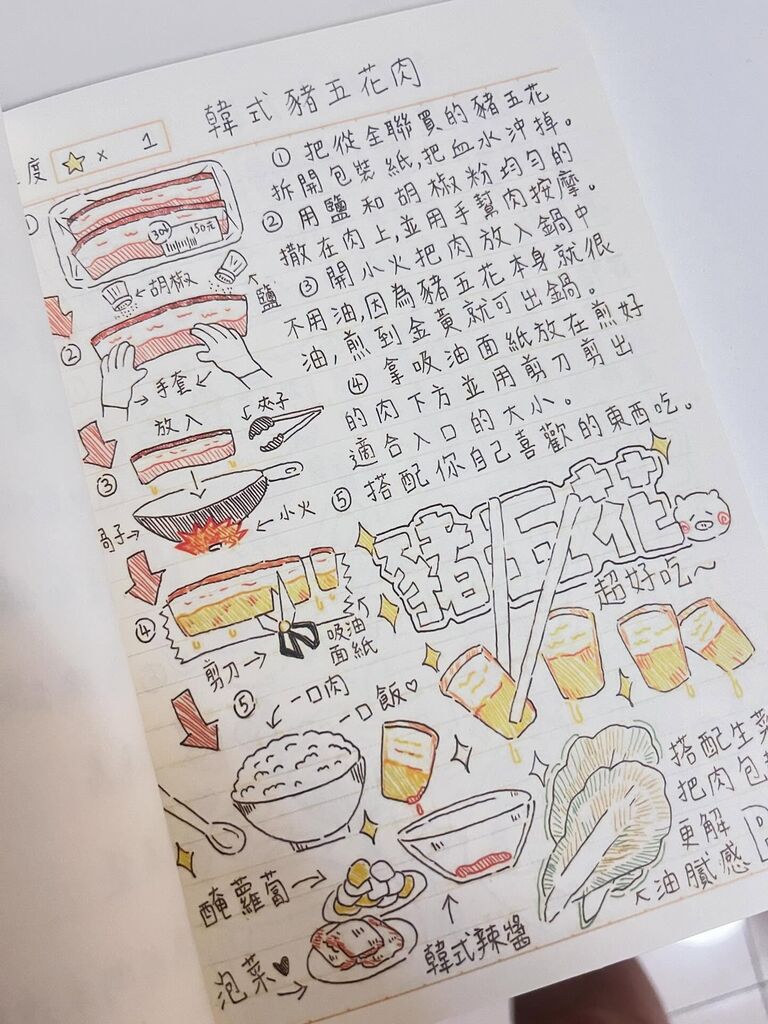 韓式豬五花肉
度 ☆ × 1
① 把從全聯買的豬五花
拆開包裝紙,把血水沖掉。
② 用鹽和胡椒粉均勻的
撒在肉上,並用手幫肉按摩。
③ 開小火把肉放入鍋中
不用油,因為豬五花本身就很
油,煎到金黃就可出鍋。
④ 拿吸油面紙放在煎好
的肉下方並用剪刀剪出
適合入口的大小。
⑤ 搭配你自己喜歡的東西吃。
150元
←胡椒
鹽
②
→手套←
放入
夾子
③
←小火
④
剪刀→
吸油
面紙
豬五花
超好吃~
⑤
一口肉
一口飯♡
搭配生菜
把肉包
更解
油膩感
醃蘿蔔→
泡菜♥
韓式辣醬